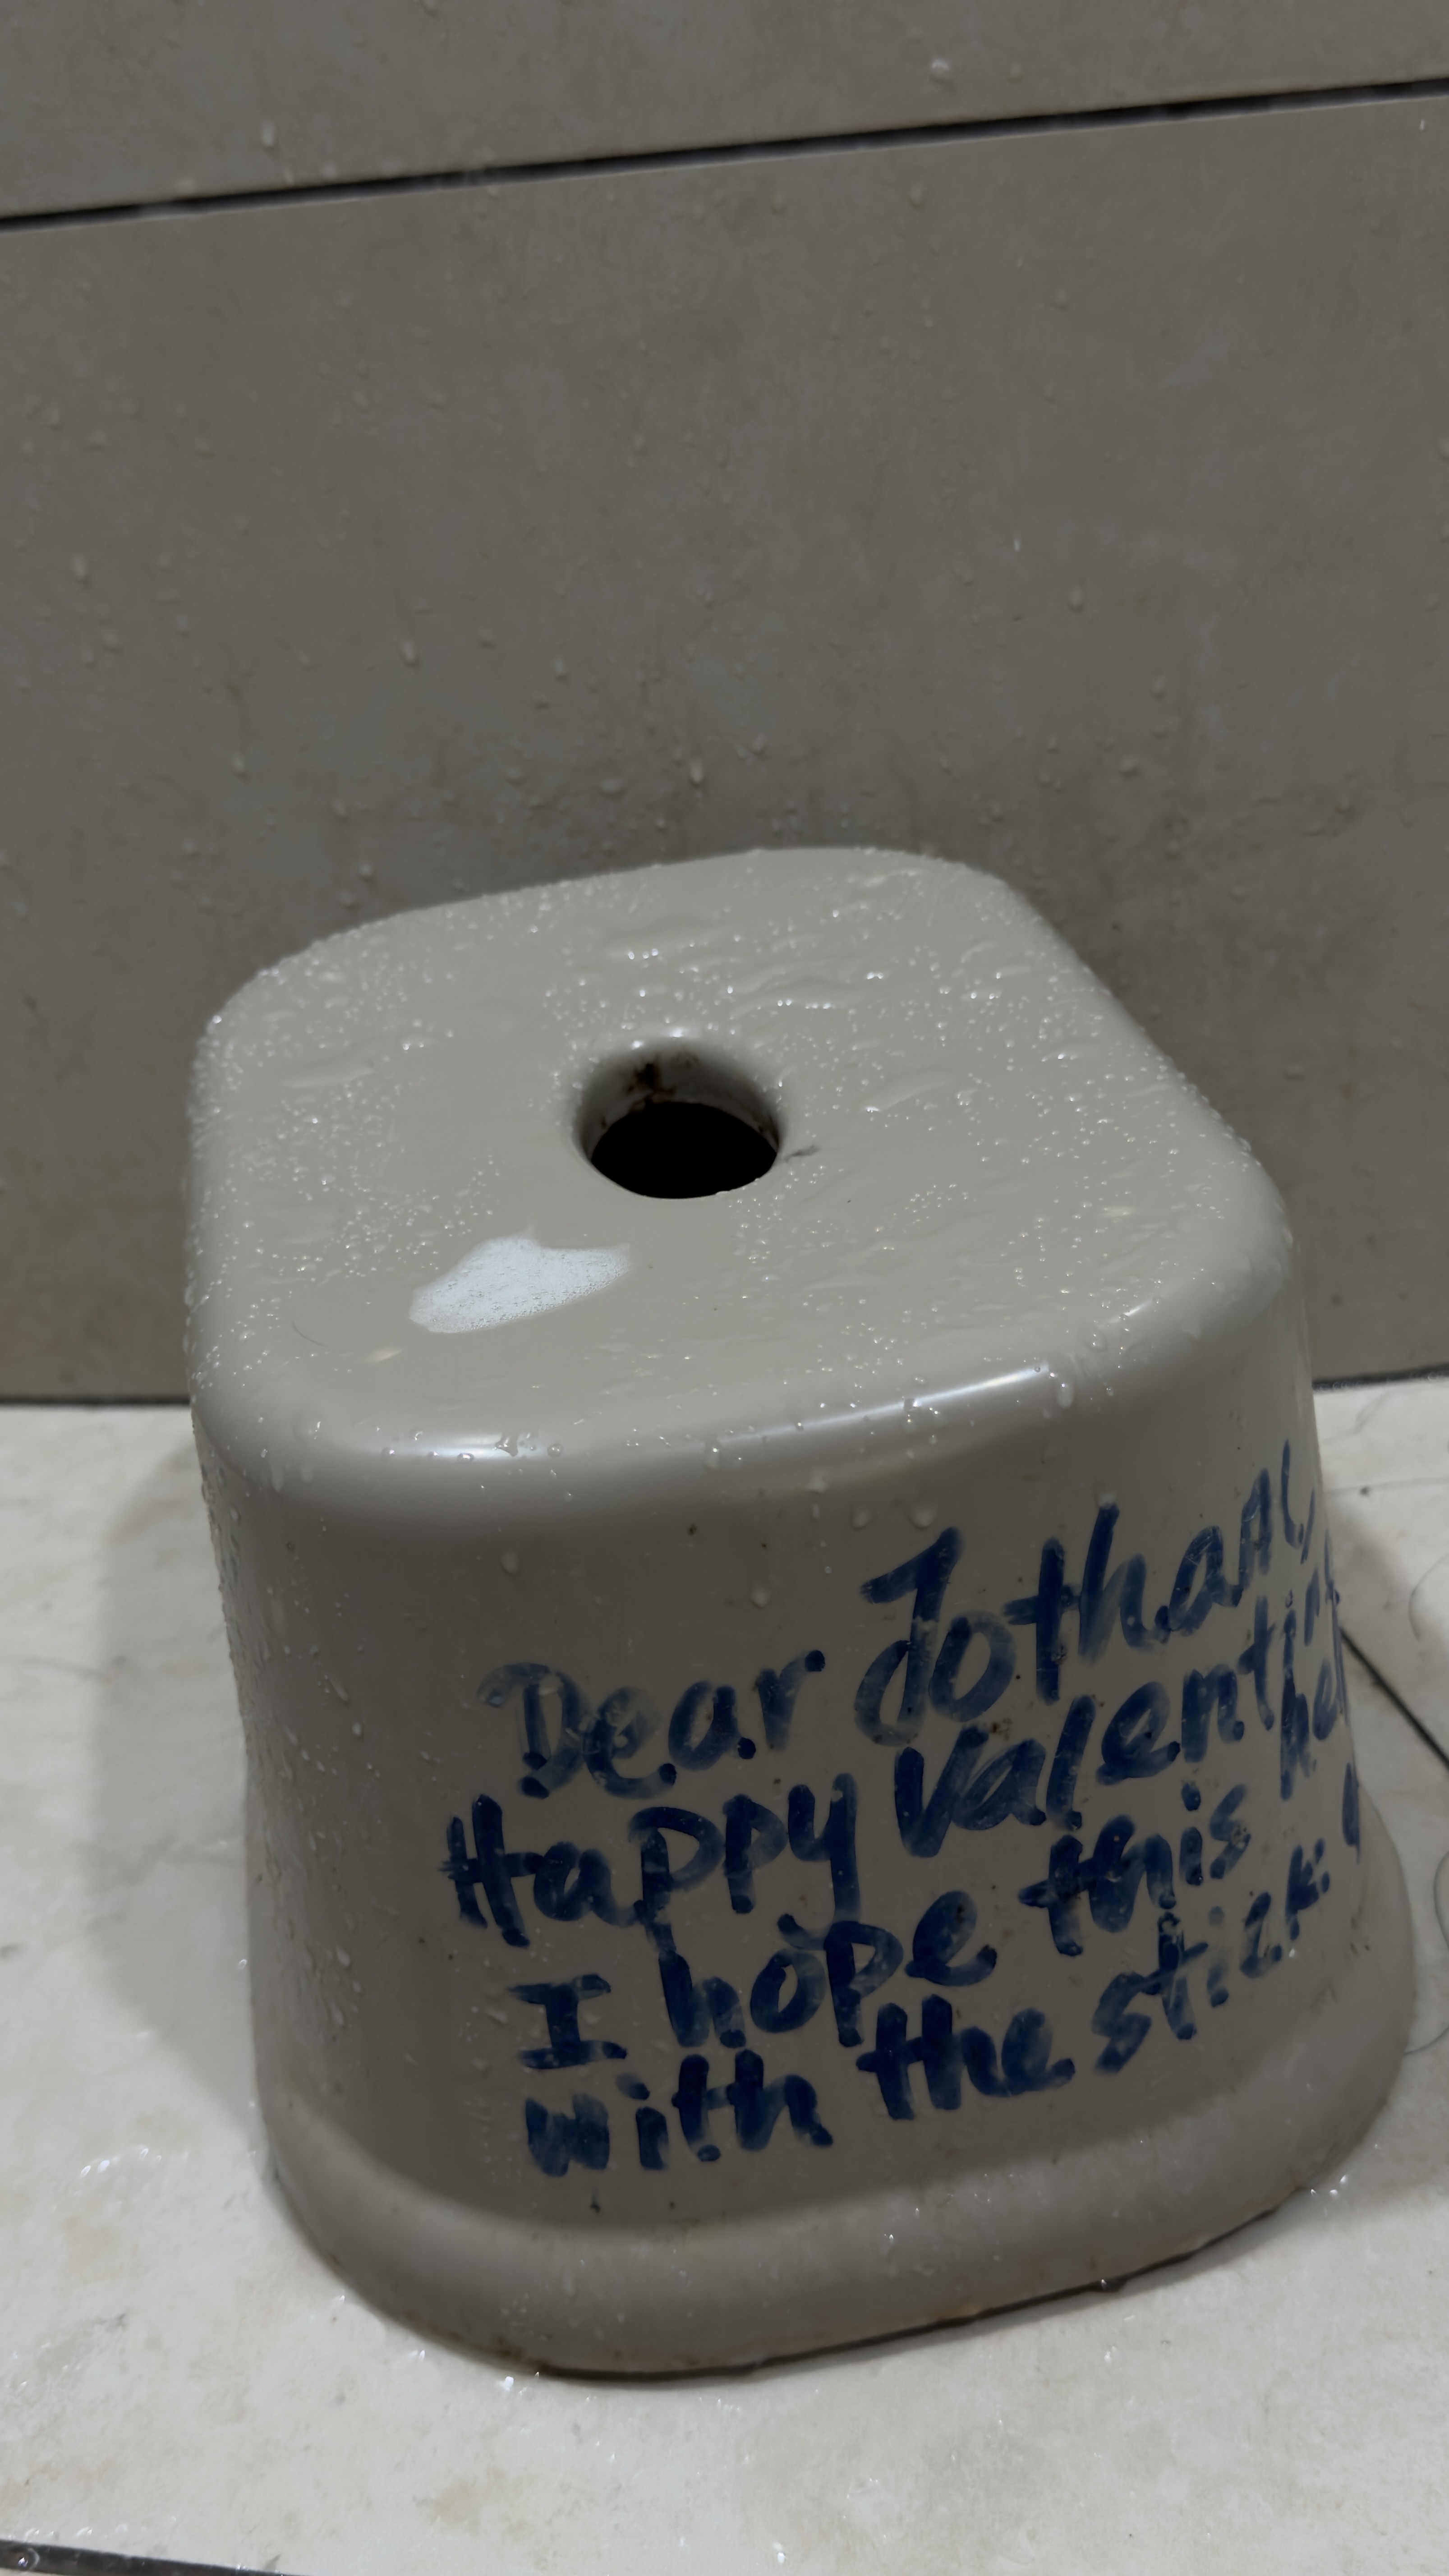 Dear Jotham,
Happy Valentine
I hope this hel
with the stick: